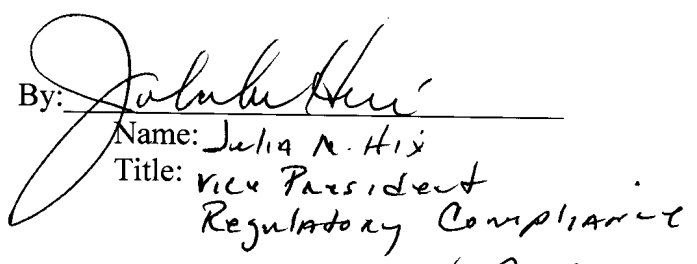 By:
Name: Julia M. Hix
Title: Vice President
Regulatory Compliance